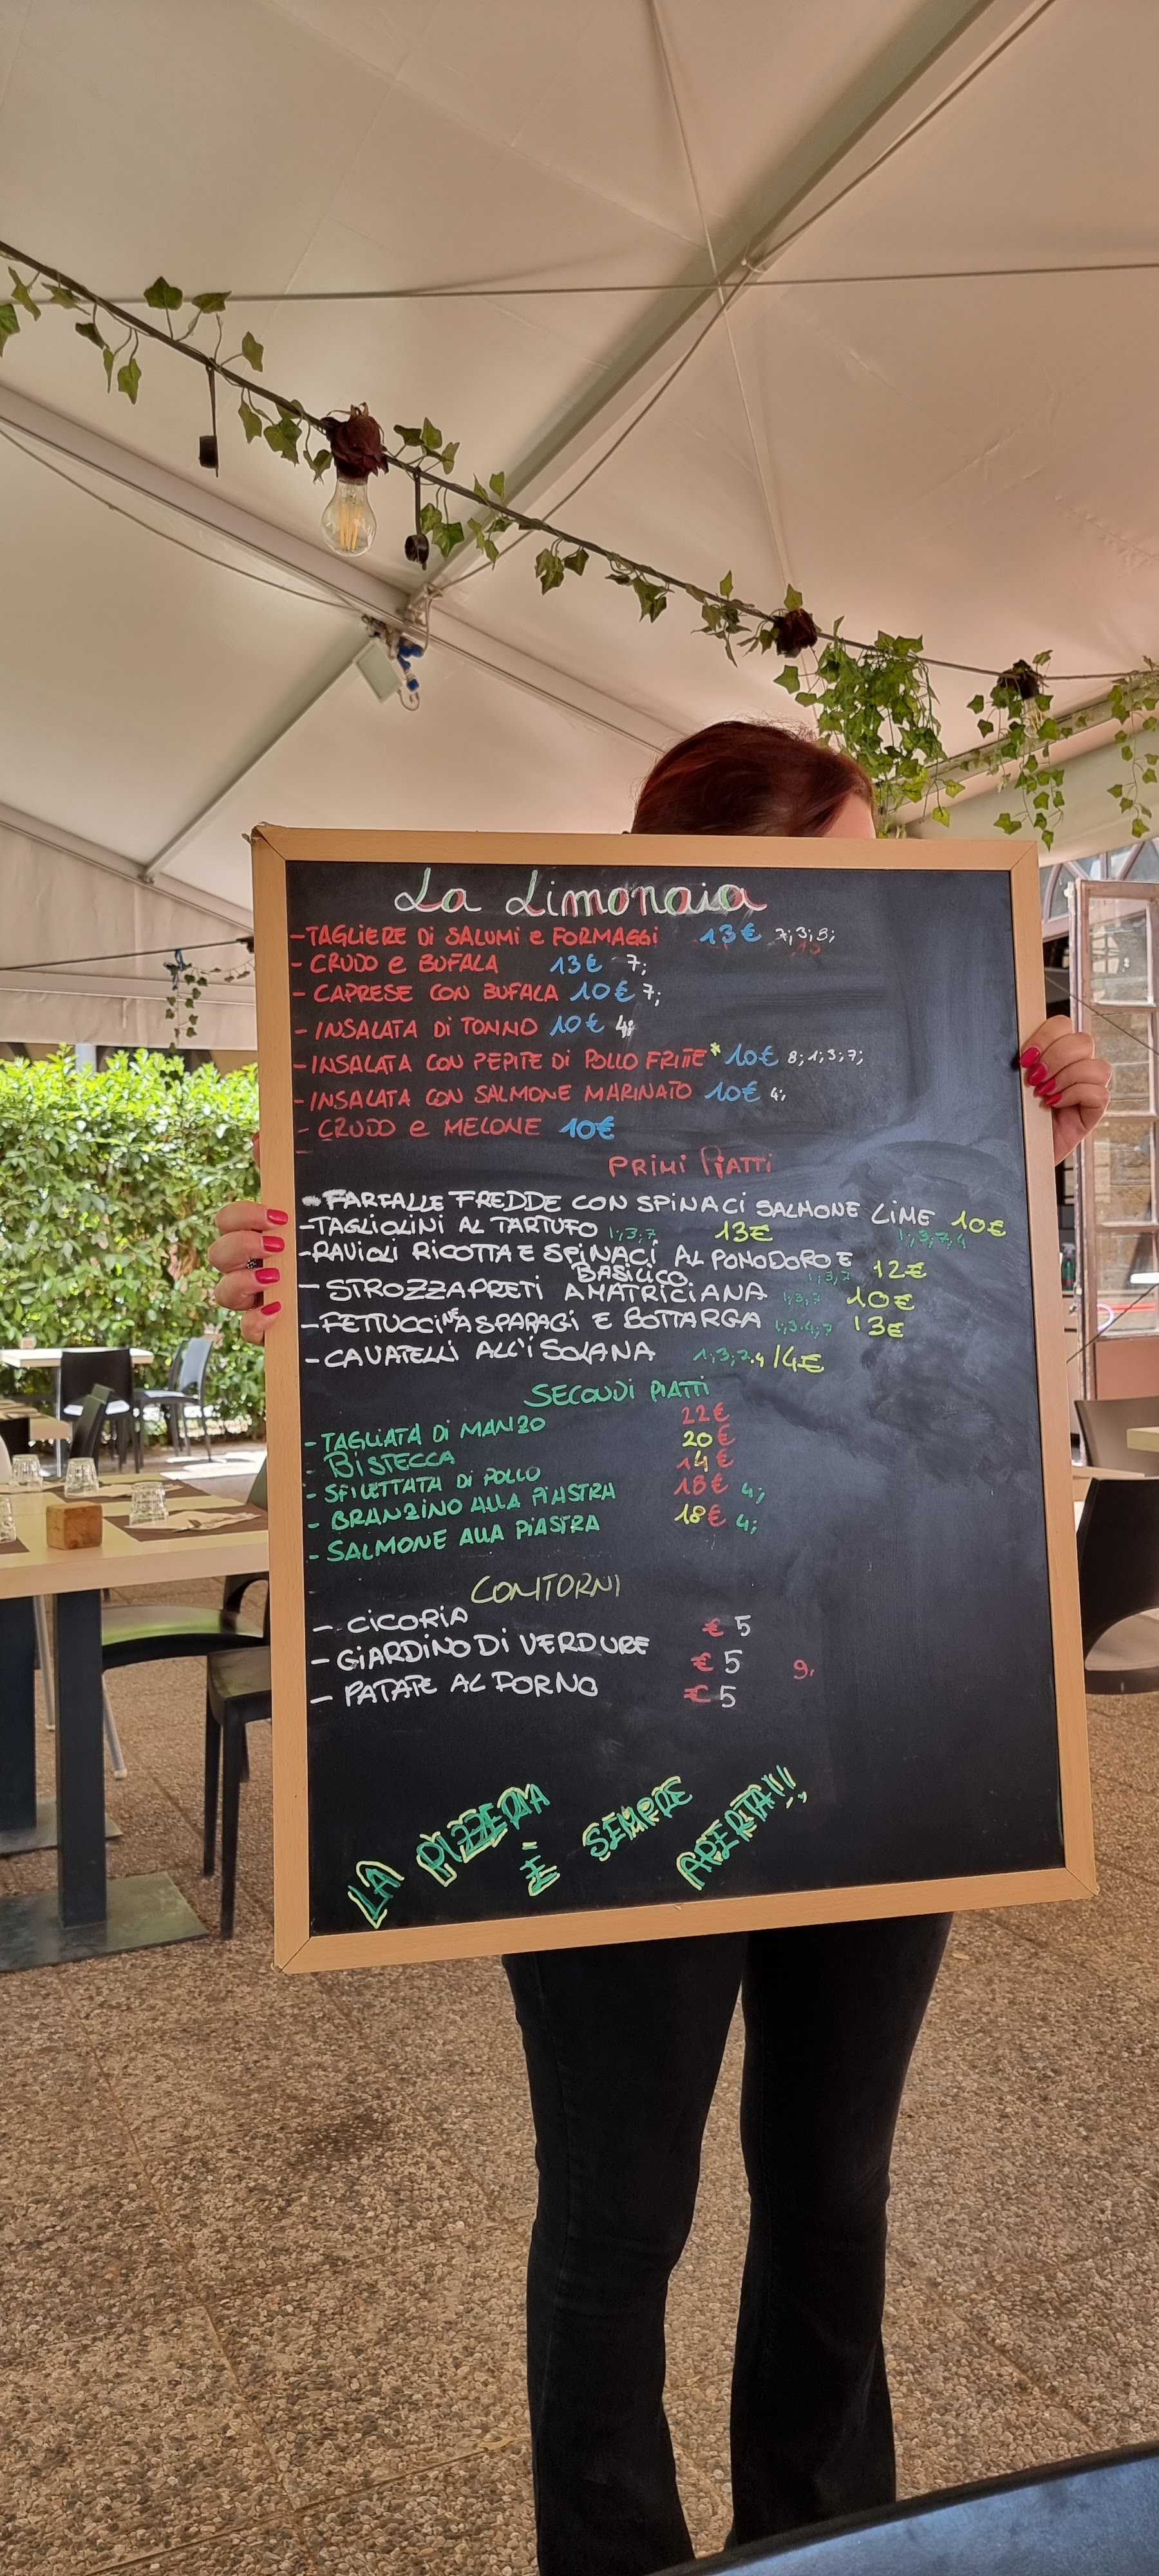 La Limonaia
- TAGLIERE Di SALUMI e FORMAGGi 13€ 7;3;8;
- CRUDO e BUFALA 13€ 7;
- CAPRESE CON BUFALA 10€ 7;
- INSALATA Di TONNO 10€ 4;
- INSALATA CON PEPITE Di POLLO FRITTE* 10€ 8;1;3;7;
- INSALATA CON SALMONE MARINATO 10€ 4;
- CRUDO e MELONE 10€
PRIMI PiATTi
- FARFALLE FREDDE CON SPINACi SALMONE LiME 10€
1;3;7;4
- TAGLIOLINI AL TARTUFO 1;3;7 13€
- RAViOLi RICOTTA E SPiNACi AL POMODORO E
BASILICO 1;3;7 12€
- STROZZAPRETi AMATRICiANA 1;3;7 10€
- FETTUCCiNE ASPARAGi E BOTTARGA 1;3;4;7 13€
- CAVATELLi ALL'iSOLANA 1;3;7;4 14€
SECONDi PIATTi
- TAGLIATA Di MANZO 22€
- BiSTECCA 20€
- SFILETTATA Di POLLO 14€
- BRANZINO ALLA PiASTRA 18€ 4;
- SALMONE ALLA PiASTRA 18€ 4;
CONTORNi
- CiCORiA € 5
- GiARDiNO Di VERDURE € 5 9,
- PATATE AL FORNO € 5
LA PiZZERIA È SEMPRE APERTA!!!